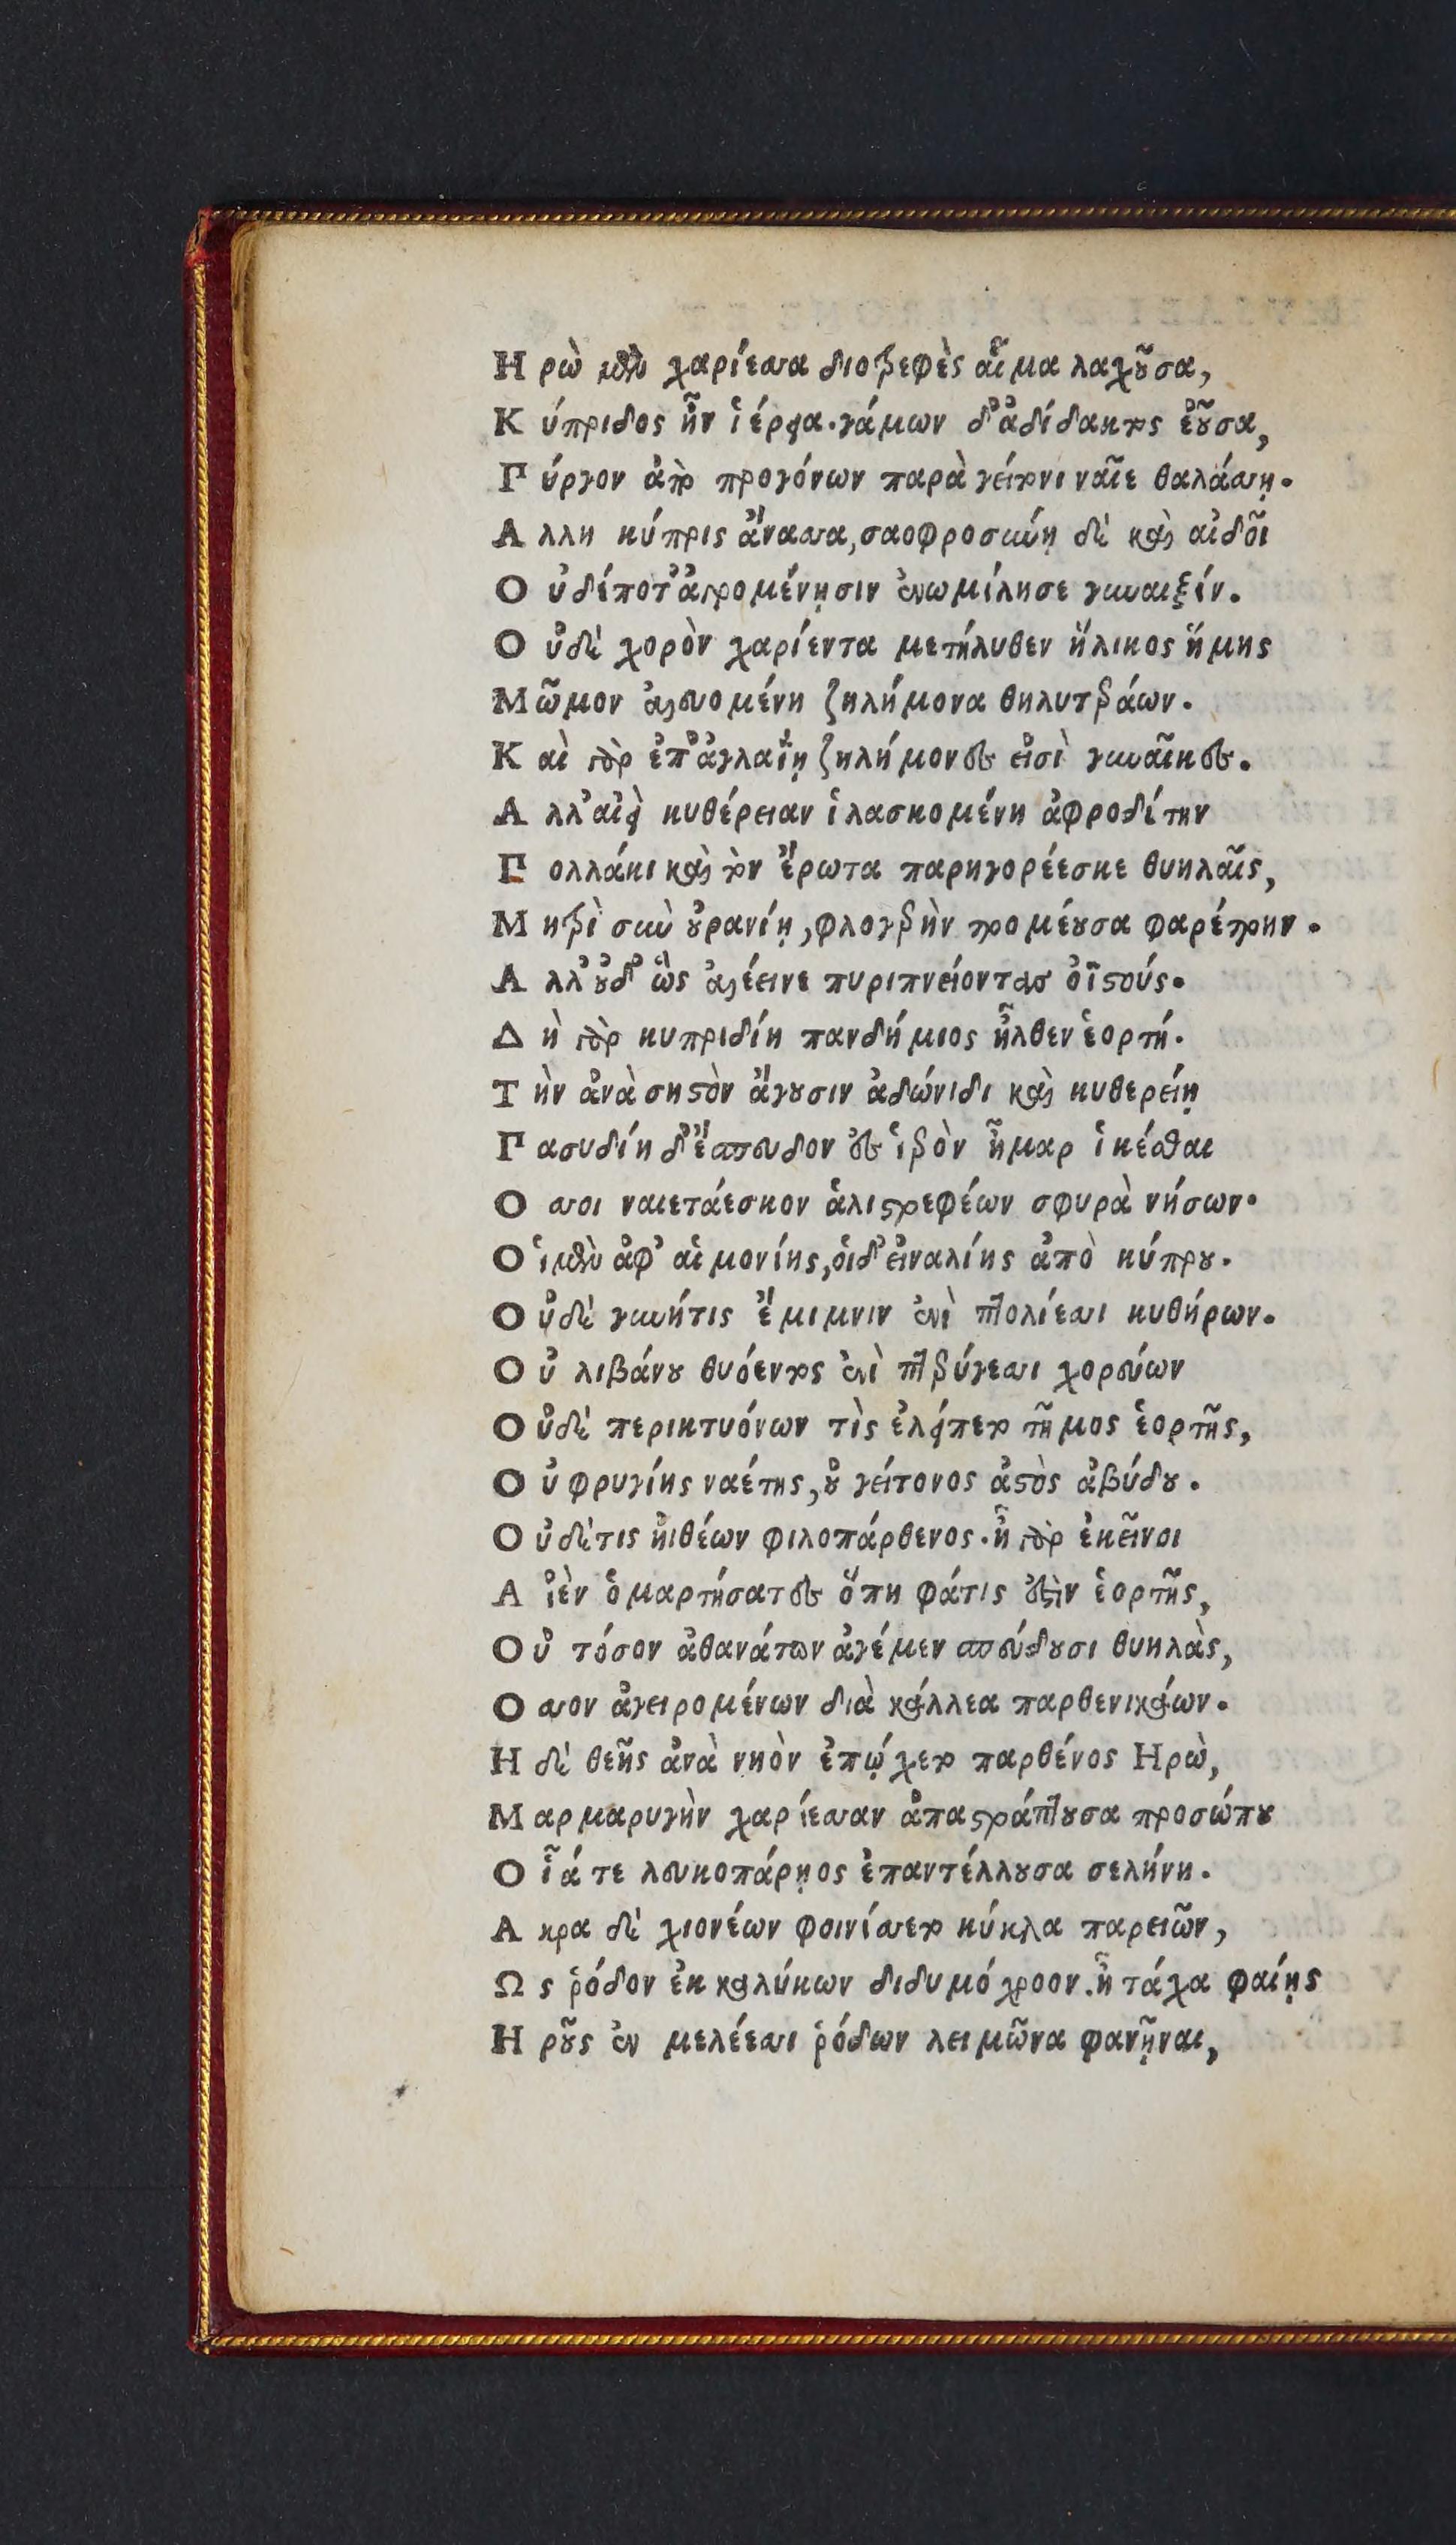 Ηρὼ μὲν χαρίεσσα διοτρεφὲς αἷμα λαχοῦσα,
Κύπριδος ἦν ἱέρεια. γάμων δ' ἀδίδακτος ἐοῦσα,
Πύργον ἀπὸ προγόνων παρὰ γείτονι ναῖε θαλάσσῃ.
Αλλη κύπρις ἄνασσα, σαοφροσύνῃ δὲ καὶ αἰδοῖ
Οὐδέποτ' ἀγρομένῃσιν ἐνωμίλησε γυναιξίν.
Οὐδὲ χορὸν χαρίεντα μετήλυθεν ἥλικος ἥμης
Μῶμον ἀλευομένη ζηλήμονα θηλυτεράων.
Καὶ γὰρ ἐπ' ἀγλαΐῃ ζηλήμονες εἰσὶ γυναῖκες.
Αλλ' αἰεὶ κυθέρειαν ἱλασκομένη ἀφροδίτην
Πολλάκι καὶ τὸν ἔρωτα παρηγορέεσκε θυηλαῖς,
Μητρὶ σὺν οὐρανίῃ, φλογερὴν τρομέουσα φαρέτρην.
Αλλ' οὐδ' ὣς ἀλέεινε πυριπνείοντας ὀϊστούς.
Δὴ γὰρ κυπριδίη πανδήμιος ἦλθεν ἑορτή.
Τὴν ἀνὰ σηστὸν ἄγουσιν ἀδώνιδι καὶ κυθερείῃ
Πασυδίη δ' ἔσπευδον ἐς ἱερὸν ἦμαρ ἱκέσθαι
Οσσοι ναιετάεσκον ἁλιστρεφέων σφυρὰ νήσων.
Οἱ μὲν ἀφ' αἱμονίης, οἱ δ' εἰναλίης ἀπὸ κύπρου.
Οὐδὲ γυνή τις ἔμιμνιν ἐνὶ πτολίεσσι κυθήρων.
Οὐ λιβάνου θυόεντος ἐνὶ πτερύγεσσι χορεύων
Οὐδὲ περικτυόνων τὶς ἐλείπετο τῆμος ἑορτῆς,
Οὐ φρυγίης ναέτης, οὐ γείτονος ἀστὸς ἀβύδου.
Οὐδέ τις ἠιθέων φιλοπάρθενος. ἦ γὰρ ἐκεῖνοι
Αἰὲν ὁμαρτήσαντες ὅπη φάτις ἐστὶν ἑορτῆς,
Οὐ τόσον ἀθανάτων ἀγέμεν σπεύδουσι θυηλὰς,
Οσσον ἀγειρομένων διὰ κάλλεα παρθενικάων.
Η δὲ θεῆς ἀνὰ νηὸν ἐπῴχετο παρθένος Ηρὼ,
Μαρμαρυγὴν χαρίεσσαν ἀπαστράπτουσα προσώπου
Οἷά τε λευκοπάρῃος ἐπαντέλλουσα σελήνη.
Ακρα δὲ χιονέων φοινίσσετο κύκλα παρειῶν,
Ως ῥόδον ἐκ καλύκων διδυμόχροον. ἦ τάχα φαίης
Ηροῦς ἐν μελέεσσι ῥόδων λειμῶνα φανῆναι,